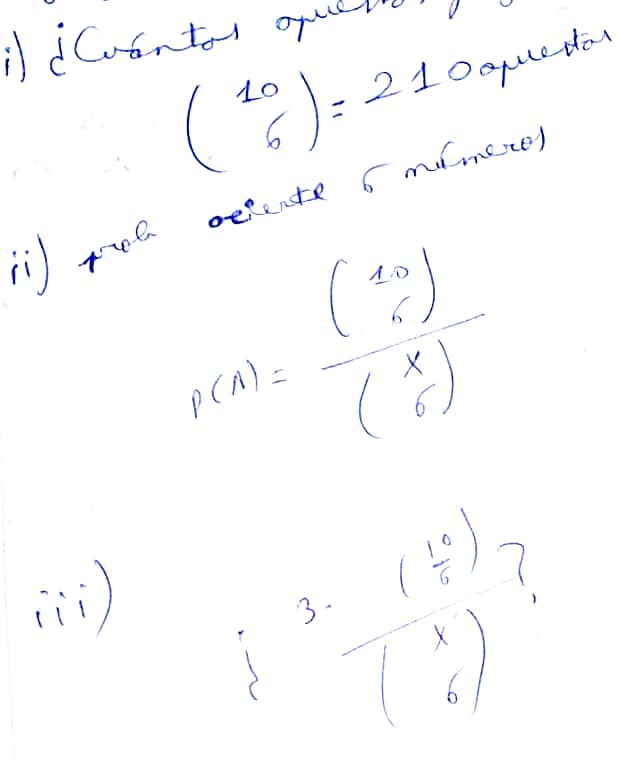 i) ¿Cuántas apuestas
(10 6) = 210 apuestas
ii) prob acierte 6 números
P(A) = (10 6) / (x 6)
iii) ¿ 3. (10 6) / (x 6) ?